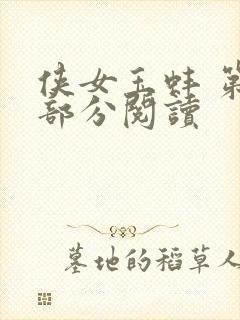 侠女玉蚌 第
部分閱讀
墓地的稻草人